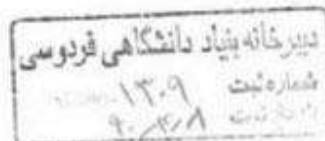 دبیرخانه بنیاد دانشگاهی فردوسی
شماره ثبت ۱۳۰۹
ثبت ۹۰/۴/۸